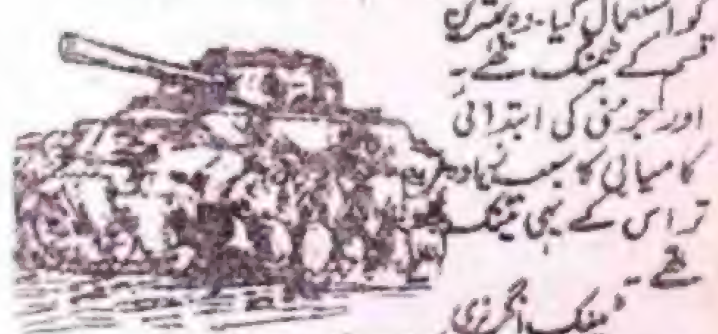 کو استعمال کیا۔ وہ بہترین
قسم کے ٹینک تھے۔
اور جرمنی کی ابتدائی
کامیابی کا سبب زیادہ
تر اس کے یہی ٹینک
تھے۔
ٹینک انگریزی